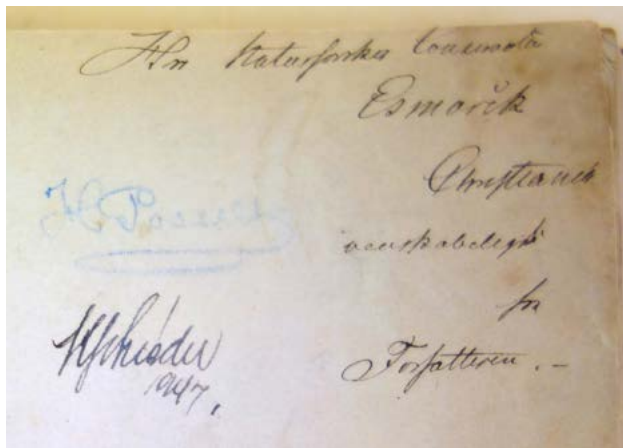 Hr Naturforsker
Esmark
Christiania
venskabeligst
fra
Forfatteren. –
H. Posselt
1947.